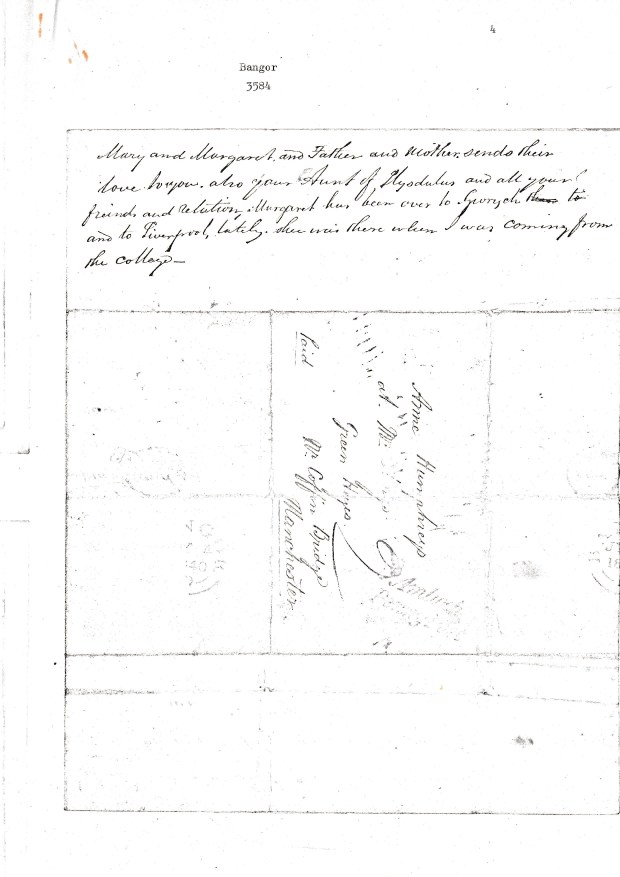 4
Bangor
3584
Mary and Margaret. and Father and Mother. sends their
love to you. also your Aunt of and all your
friends and relation. Margaret has been over to them to
and to Liverpool, lately. shee was there when I was coming from
the college—
Anne Humphreys
at Mr
Green Hayes
Nr Coffin Bridge
Manchester.
Paid